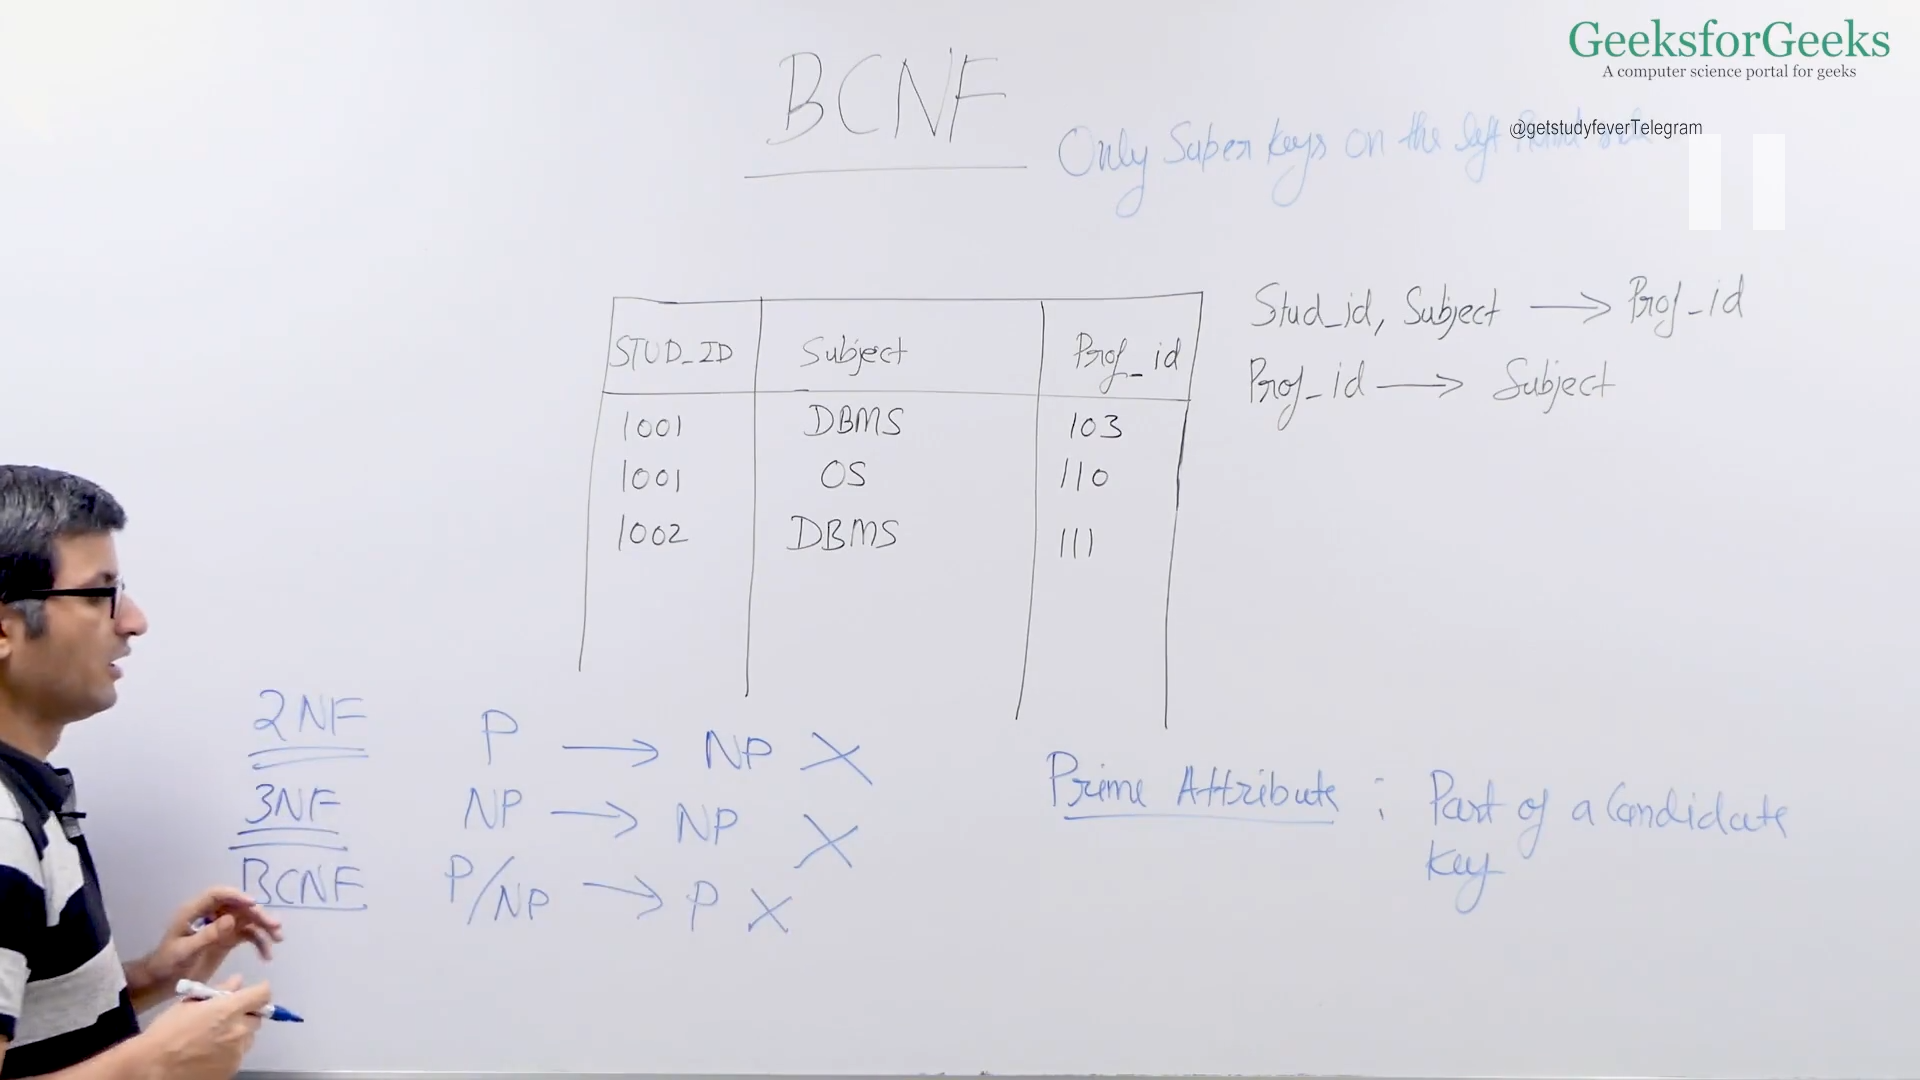 GeeksforGeeks
A computer science portal for geeks
BCNF
@getstudyfeverTelegram
Only Super Keys on the left
STUD_ID Subject Prof_id
1001 DBMS 103
1001 OS 110
1002 DBMS 111
Stud_id, Subject → Prof_id
Prof_id → Subject
2NF P → NP X
3NF NP → NP X
BCNF P/NP → P X
Prime Attribute : Part of a Candidate
Key